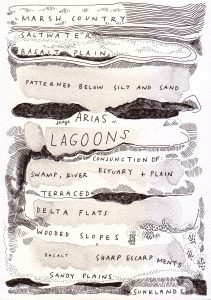 MARSH COUNTRY
SALTWATER
BASALT PLAIN
PATTERNED BELOW SILT AND SAND
ARIAS
LAGOONS
CONJUNCTION OF
SWAMP, RIVER ESTUARY + PLAIN
TERRACED
DELTA FLATS
WOODED SLOPES
BASALT SHARP ESCARPMENTS
SANDY PLAINS
SUNKLANDS